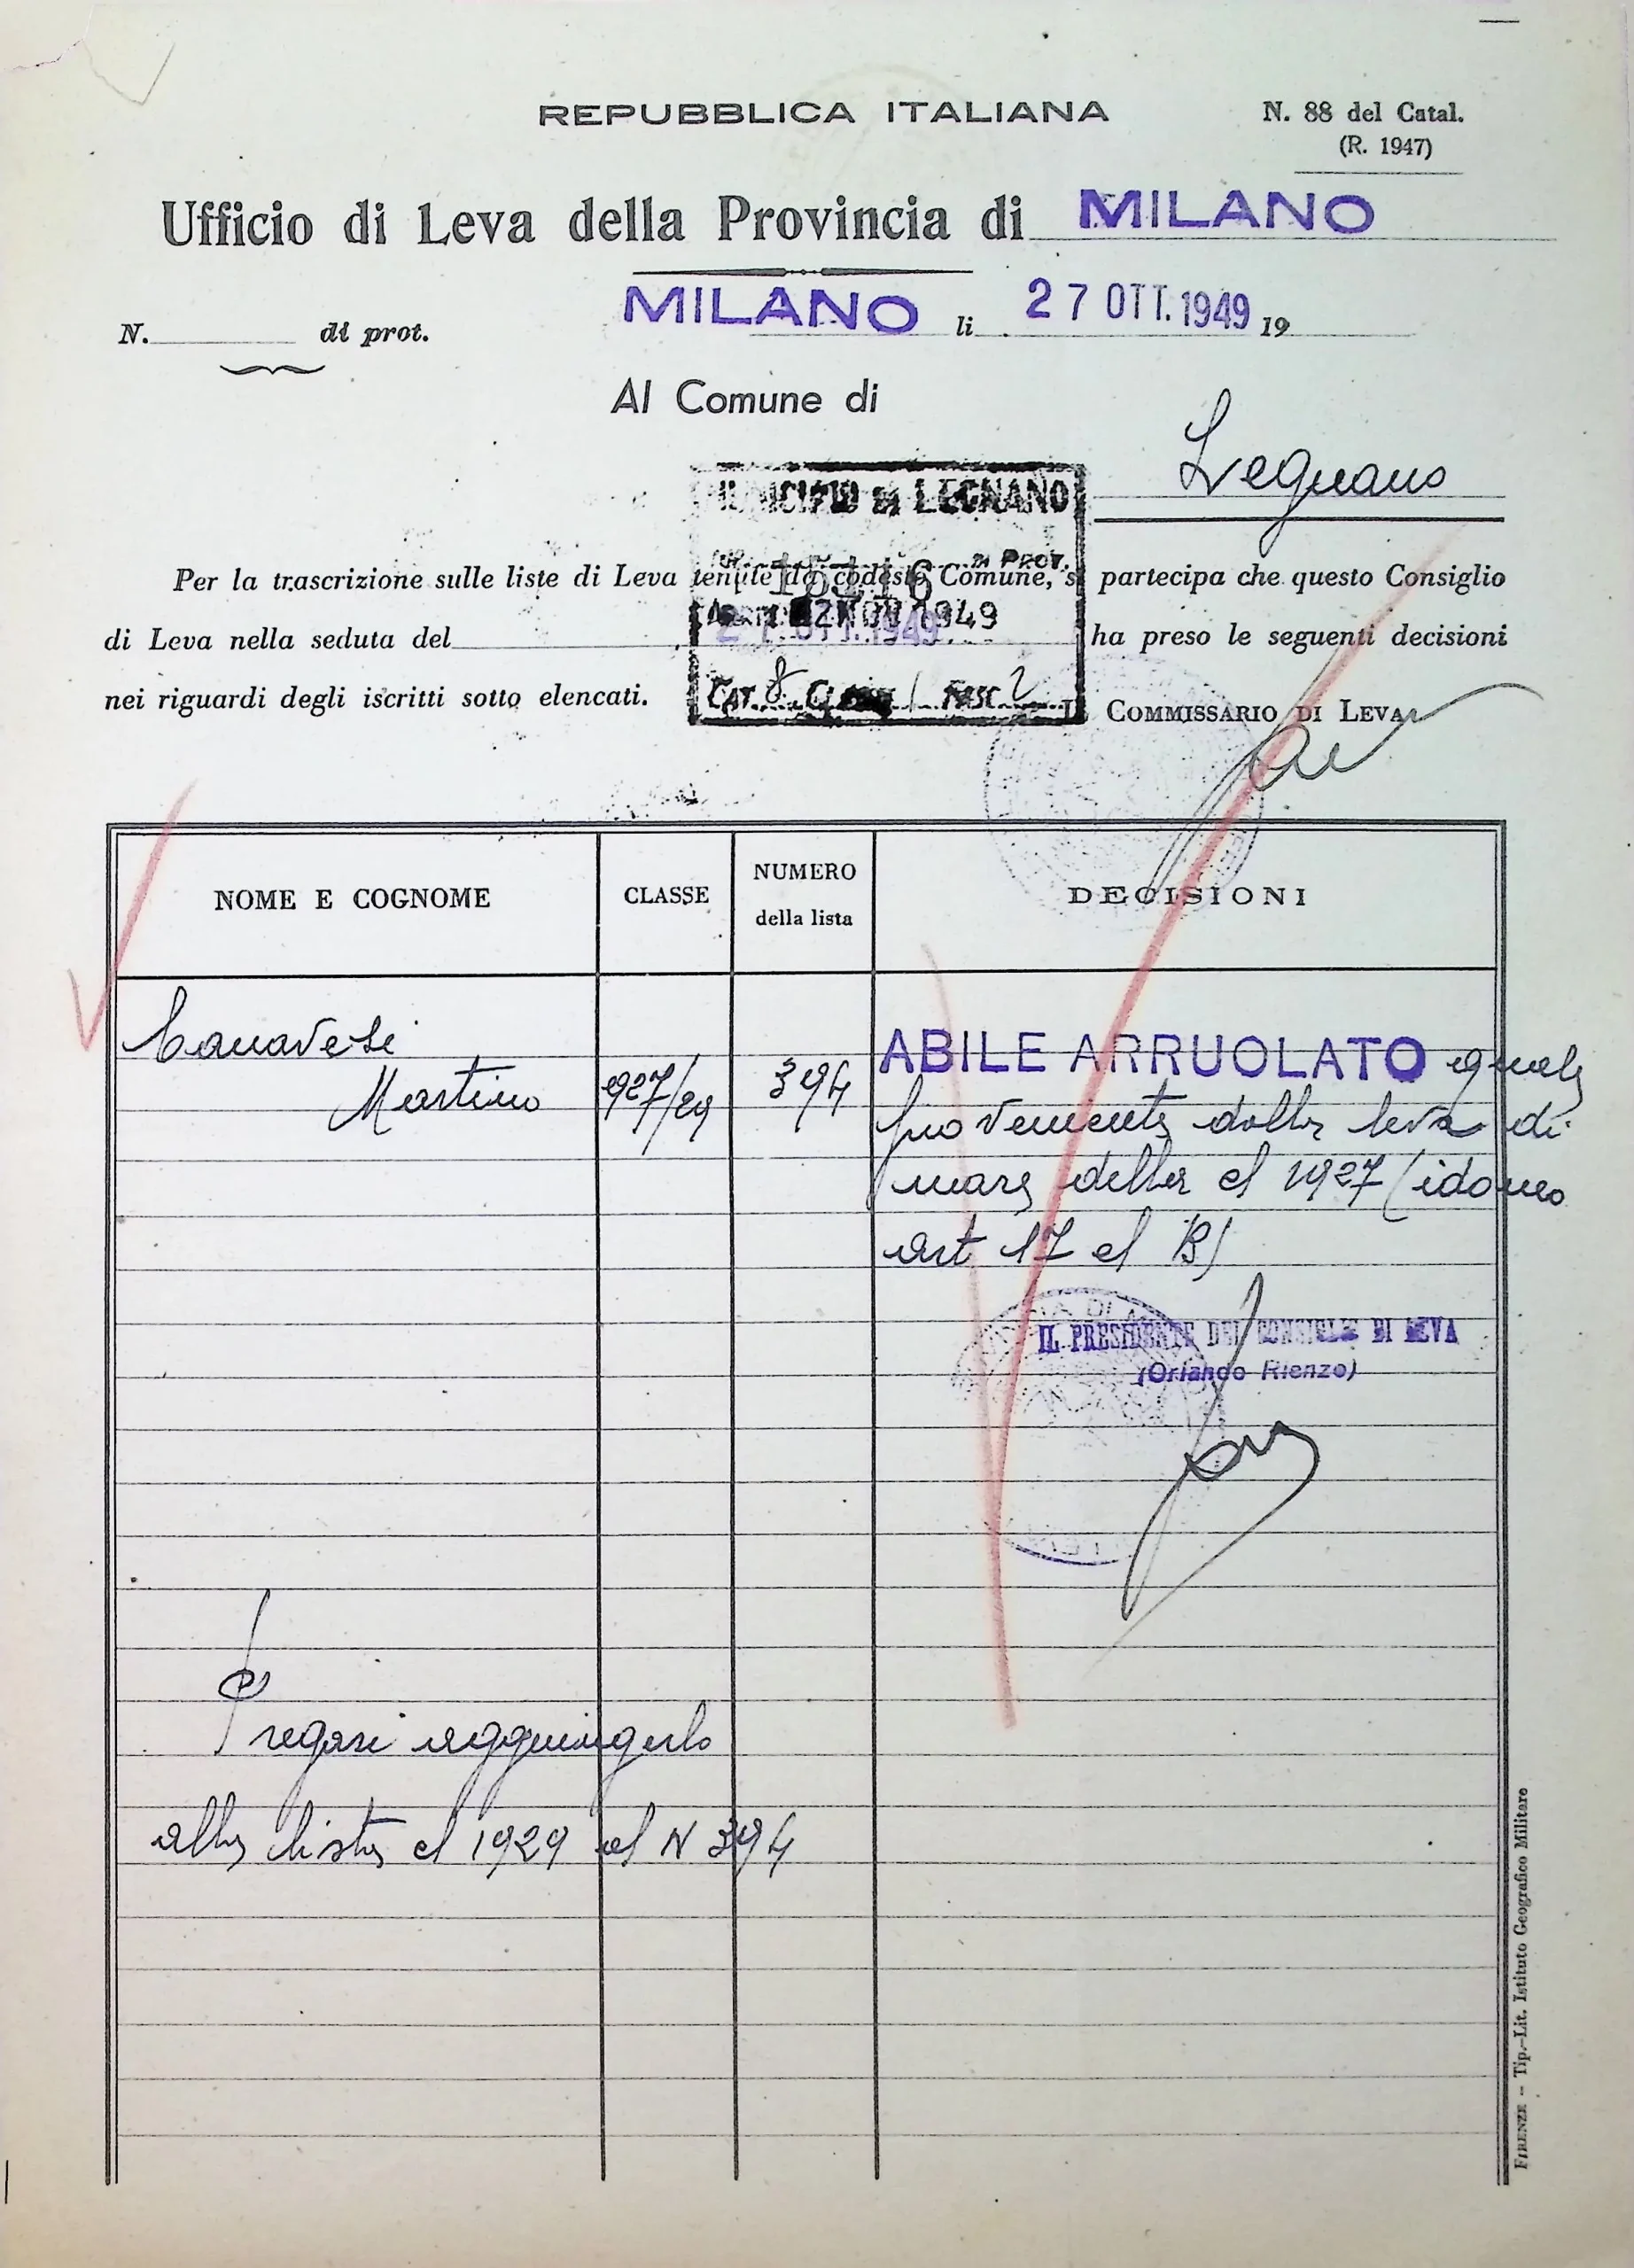 REPUBBLICA ITALIANA
N. 88 del Catal.
(R. 1947)
Ufficio di Leva della Provincia di MILANO
MILANO li 27 OTT. 1949 19
N. di prot.
Al Comune di
Legnano
MUNICIPIO DI LEGNANO
N. DI PROT.
Per la trascrizione sulle liste di Leva tenute da codesto Comune, si partecipa che questo Consiglio
NOV 1949
di Leva nella seduta del 27 OTT. 1949 ha preso le seguenti decisioni
nei riguardi degli iscritti sotto elencati.
CAT. 8 CLASSE 1 FASC. 2
IL COMMISSARIO DI LEVA
NOME E COGNOME
CLASSE
NUMERO
della lista
DECISIONI
Canavesi
Martino
1927/29
394
ABILE ARRUOLATO quale
proveniente dalla leva di
mare della cl 1927 (idoneo
art 17 cl B)
IL PRESIDENTE DEL CONSIGLIO DI LEVA
(Orlando Rienzo)
Pregasi aggiungerlo
alla lista cl 1929 al N 394
FIRENZE - Tip.-Lit. Istituto Geografico Militare